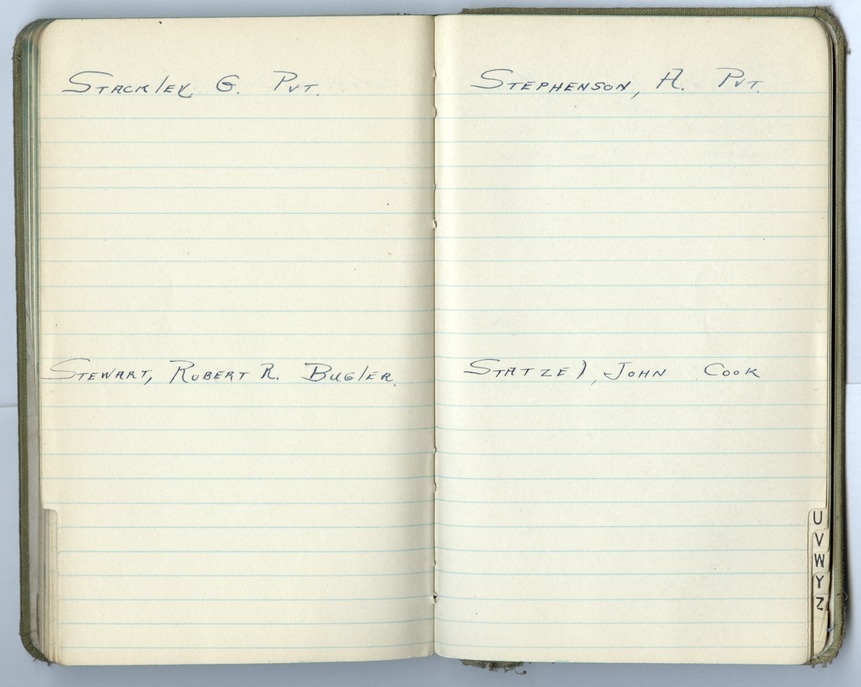 Stackley G. Pvt.
Stewart, Robert R. Bugler.
Stephenson, A. Pvt.
Statzel, John Cook
U
V
W
Y
Z